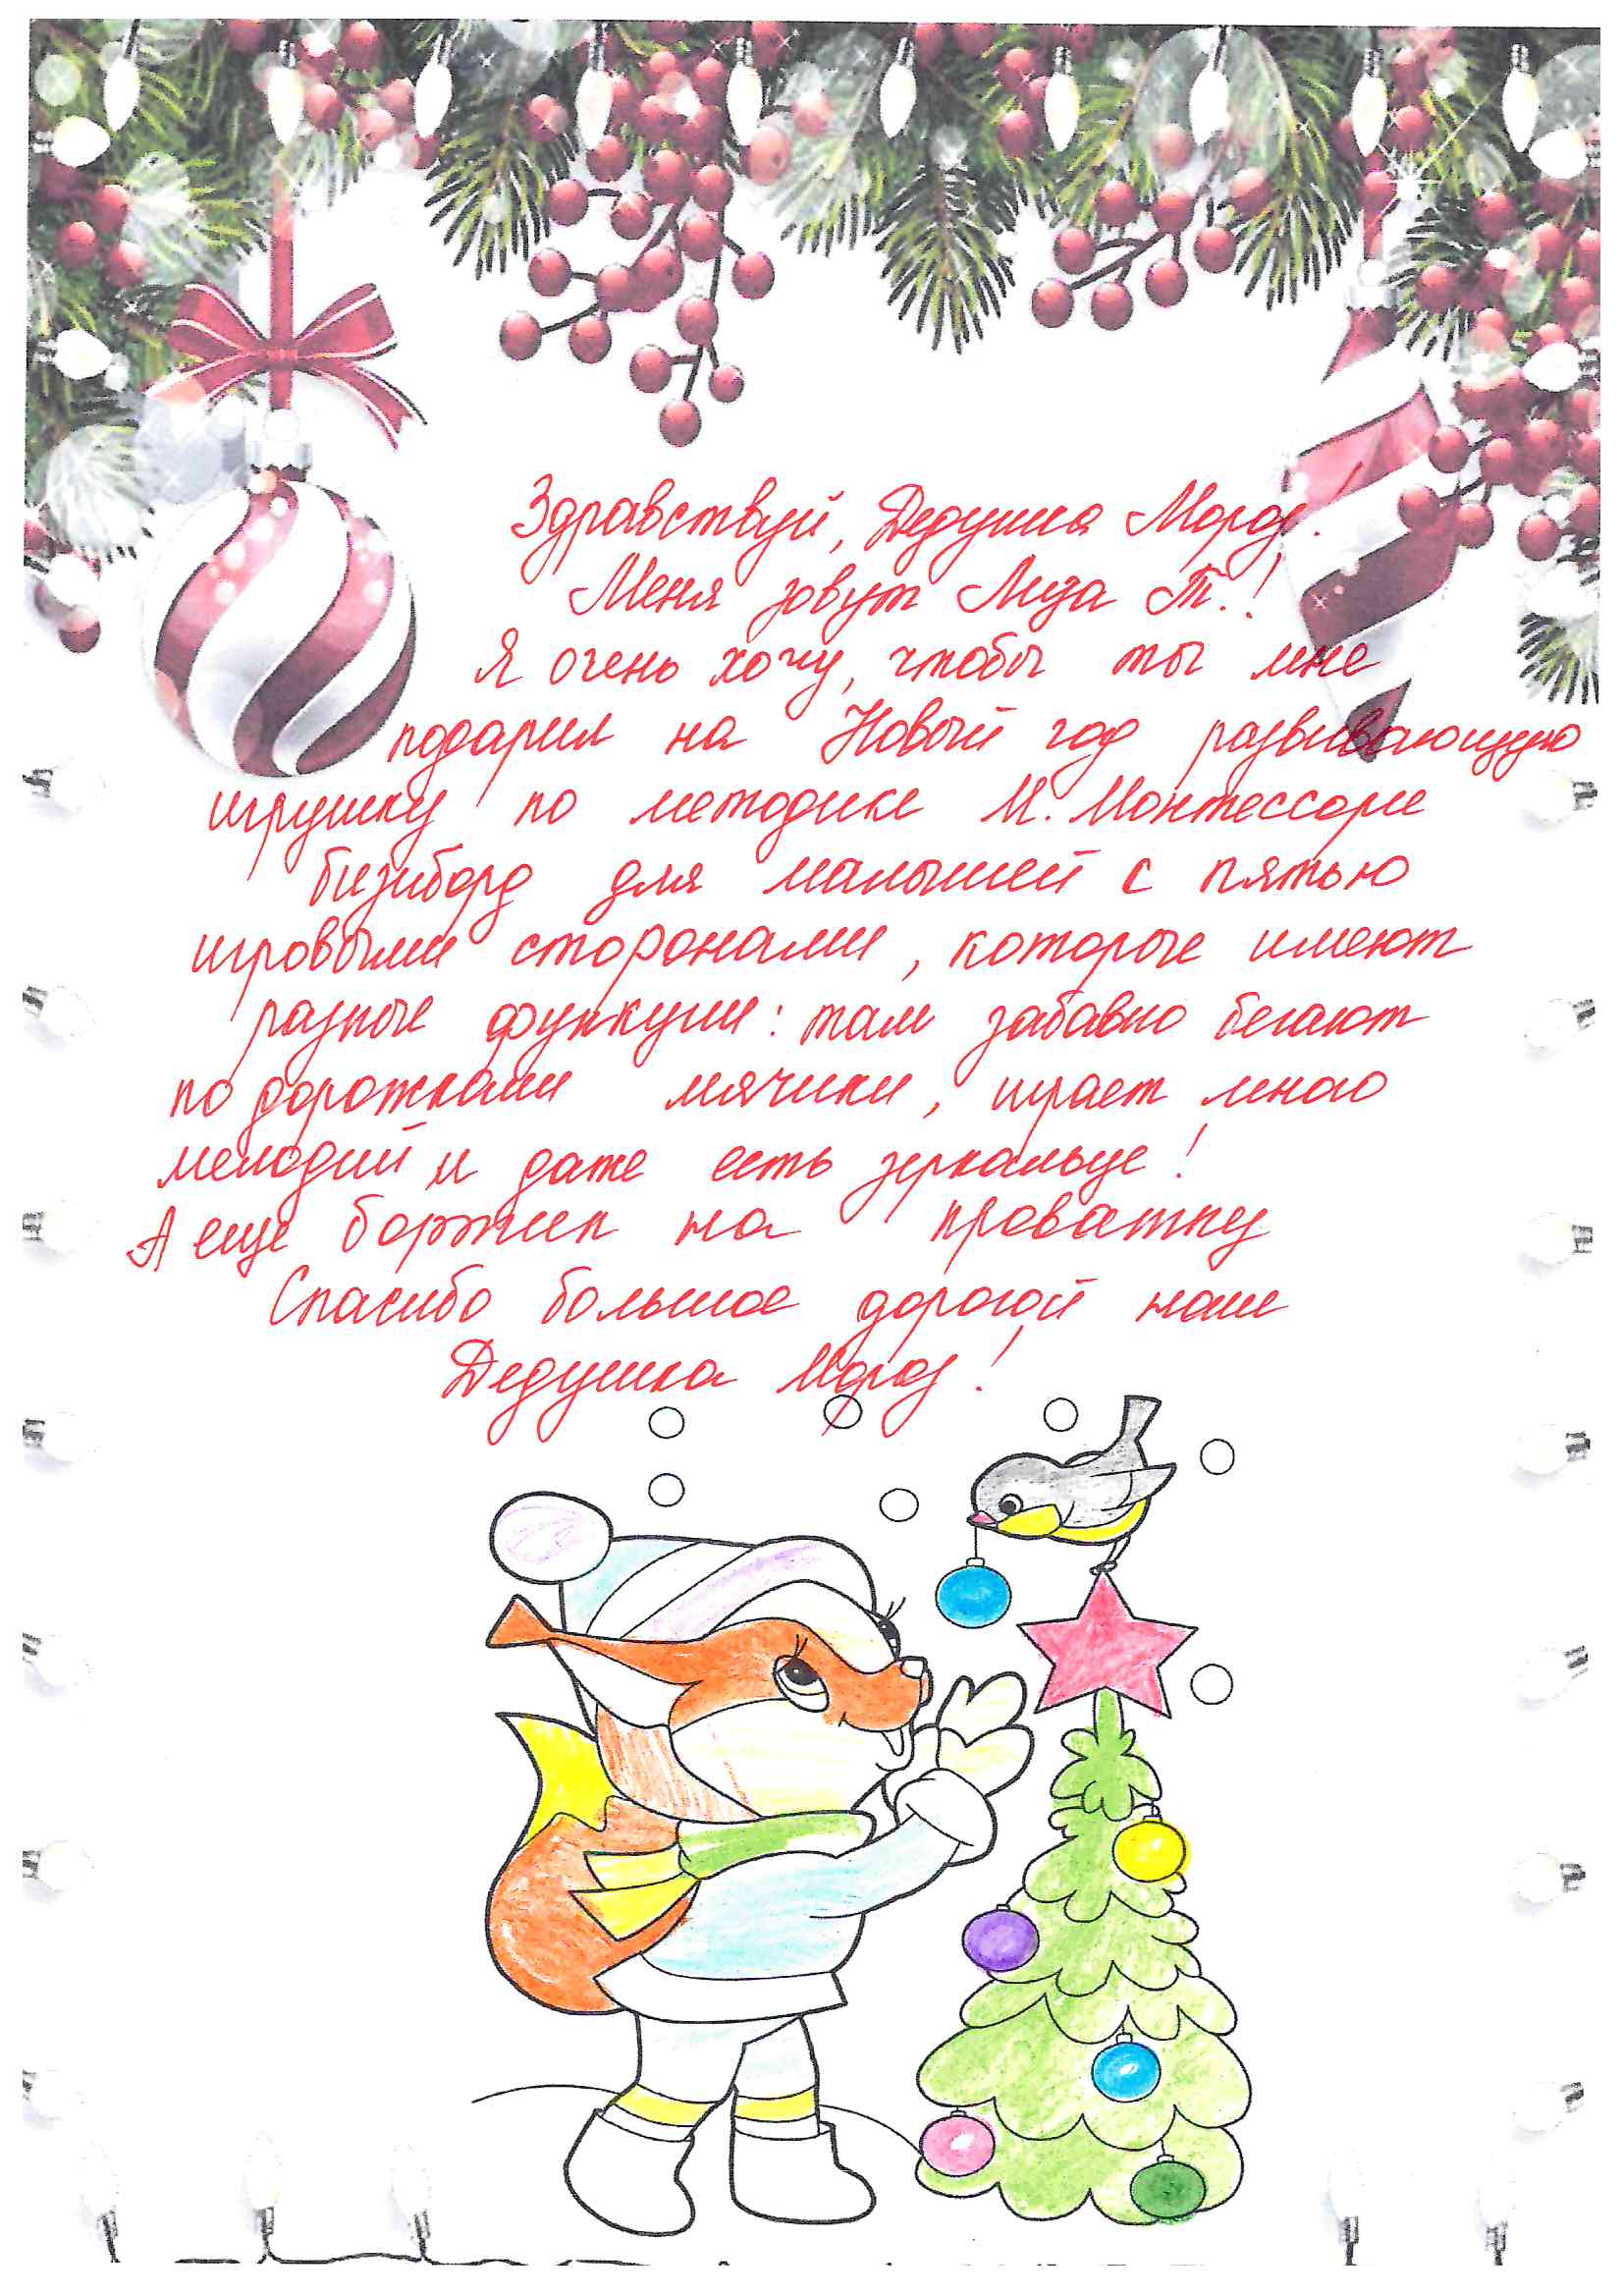 Здравствуй, Дедушка Мороз!
Меня зовут Муза Т.!
Я очень хочу, чтобы ты мне
подарил на Новый год развивающую
игрушку по методике М. Монтессори
бизиборд для малышей с пятью
игровыми сторонами, которые имеют
разные функции: там забавно бегают
по дорожками мячики, играет много
мелодий и даже есть зеркальце!
А еще бортик на кроватку
Спасибо большое дорогой наш
Дедушка Мороз!